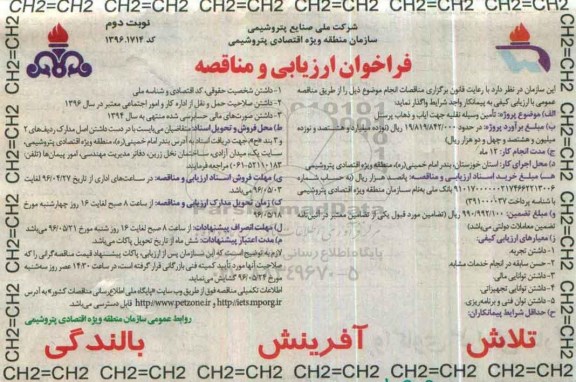 CH2=CH2 CH2=CH2 CH2=CH2 CH2=CH2 CH2=CH2 CH2=CH2 CH2=CH2
شرکت ملی صنایع پتروشیمی
سازمان منطقه ویژه اقتصادی پتروشیمی
نوبت دوم
کد ۱۳۹۶.۱۷۱۴
فراخوان ارزیابی و مناقصه
این سازمان در نظر دارد با رعایت قانون برگزاری مناقصات انجام موضوع ذیل را از طریق مناقصه
عمومی با ارزیابی کیفی به پیمانکار واجد شرایط واگذار نماید:
الف) موضوع پروژه: تأمین وسیله نقلیه جهت ایاب و ذهاب پرسنل
ب) مبلغ برآورد پروژه: در حدود ۱۹/۸۱۹/۸۴۲/۰۰۰ ریال (نوزده میلیارد و هشتصد و نوزده
میلیون و هشتصد و چهل و دو هزار ریال)
ج) مدت انجام کار: ۱۲ ماه
د) محل اجرای کار: استان خوزستان، بندر امام خمینی(ره)، منطقه ویژه اقتصادی پتروشیمی
هـ) مبلغ خرید اسناد ارزیابی و مناقصه: پانصد هزار ریال (به حساب شماره
۹۰۱۱۷۰۰۰۰۰۲۱۷۴۶۶۲۲۱۳۰۰۶ بانک ملی به‌نام سازمان منطقه ویژه اقتصادی پتروشیمی
با شناسه پرداخت ۳۹۱۰۰۰۰۳۷)
و) مبلغ تضمین: ۹۹۰/۹۹۲/۱۰۰ ریال (تضامین مورد قبول یکی از تضامین معتبر در آیین‌نامه
تضمین معاملات دولتی می‌باشد)
ز) معیارهای ارزیابی کیفی:
۱- داشتن تجربه.
۲- حسن سابقه در انجام خدمات مشابه
۳- داشتن توانایی مالی.
۴- داشتن توانایی تجهیزاتی.
۵- داشتن توان فنی و برنامه‌ریزی.
ح) حداقل شرایط پیمانکاران:
۱- داشتن شخصیت حقوقی، کد اقتصادی و شناسه ملی
۲- داشتن صلاحیت حمل و نقل از اداره کار و امور اجتماعی معتبر در سال ۱۳۹۶
۳- داشتن صورت‌های مالی حسابرسی شده منتهی به سال ۱۳۹۴
ط) محل فروش و تحویل اسناد: متقاضیان می‌بایست با در دست داشتن اصل مدارک ردیف‌های ۲
و ۳ بند فوق، جهت دریافت اسناد به آدرس بندر امام خمینی(ره)، منطقه ویژه اقتصادی پتروشیمی،
سایت یک، میدان آزادی، ساختمان نخل زرین، دفاتر مدیریت مهندسی، امور پیمان‌ها (تلفن:
۵۲۱۱۰۱۸۳-۰۶۱) مراجعه فرمایند.
ی) مهلت فروش اسناد ارزیابی و مناقصه: در ساعت‌های اداری از تاریخ ۹۶/۰۴/۲۷ لغایت
۹۶/۰۵/۰۳ می‌باشد.
ک) زمان تحویل مدارک ارزیابی و مناقصه: از ساعت ۸ صبح لغایت ۱۶ روز چهارشنبه مورخ
۹۶/۰۵/۱۸
ل) مهلت انصراف پیشنهادات: از ساعت ۸ صبح لغایت ۱۶ روز شنبه مورخ ۹۶/۰۵/۲۱ می‌باشد.
م) مدت اعتبار پیشنهادات: شش ماه از تاریخ تحویل پاکات می‌باشد.
لازم به توضیح است که این سازمان پس از ارزیابی، پاکات پیشنهاد قیمت مناقصه‌گرانی را که
صلاحیت آنها مورد تأیید کمیته فنی بازرگانی قرار گرفته است، در ساعت ۱۴۳۰ عصر روز سه‌شنبه
مورخ ۹۶/۰۵/۲۴ گشایش می‌نماید.
اطلاعات تکمیلی مناقصه فوق از طریق وب‌سایت «پایگاه ملی اطلاع‌رسانی مناقصات کشور» به آدرس
http://iets.mporg.ir و http//www.petzone.ir قابل دسترسی می‌باشد.
روابط عمومی سازمان منطقه ویژه اقتصادی پتروشیمی
تلاش آفرینش بالندگی
CH2=CH2 CH2=CH2 CH2=CH2 CH2=CH2 CH2=CH2 CH2=CH2 CH2=CH2